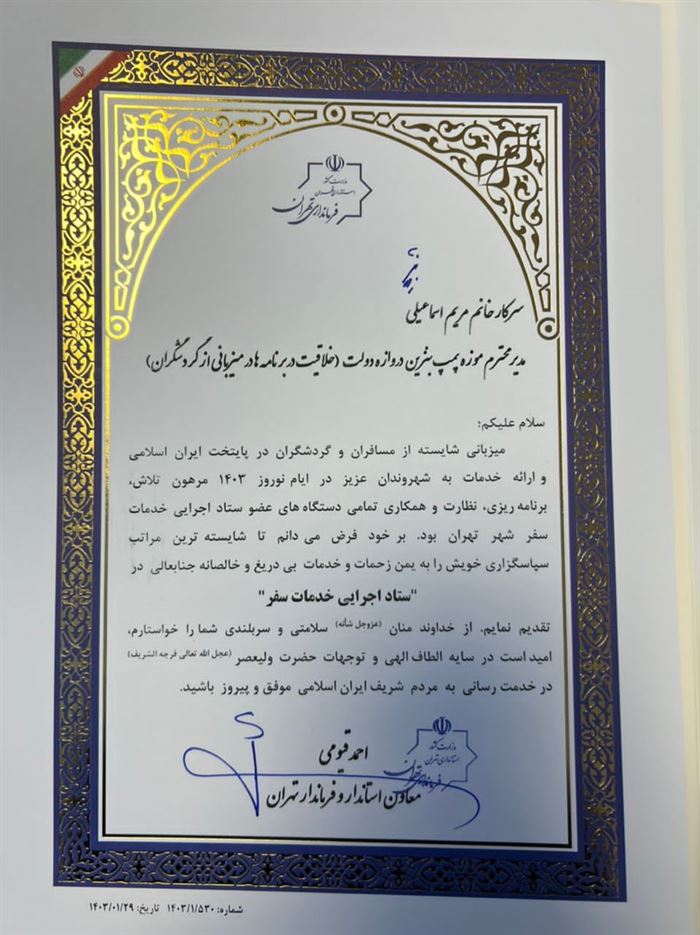 وزارت کشور
استانداری تهران
فرمانداری تهران
سرکار خانم مریم اسماعیلی
مدیر محترم موزه پمپ بنزین دروازه دولت (خلاقیت در برنامه ها در میزبانی از گردشگران)
سلام علیکم؛
میزبانی شایسته از مسافران و گردشگران در پایتخت ایران اسلامی
و ارائه خدمات به شهروندان عزیز در ایام نوروز ۱۴۰۳ مرهون تلاش،
برنامه ریزی، نظارت و همکاری تمامی دستگاه های عضو ستاد اجرایی خدمات
سفر شهر تهران بود. بر خود فرض می دانم تا شایسته ترین مراتب
سپاسگزاری خویش را به یمن زحمات و خدمات بی دریغ و خالصانه جنابعالی در
"ستاد اجرایی خدمات سفر"
تقدیم نمایم. از خداوند منان (عزوجل شأنه) سلامتی و سربلندی شما را خواستارم،
امید است در سایه الطاف الهی و توجهات حضرت ولیعصر (عجل الله تعالی فرجه الشریف)
در خدمت رسانی به مردم شریف ایران اسلامی موفق و پیروز باشید.
احمد قیومی
معاون استاندار و فرماندار تهران
وزارت کشور
استانداری تهران
فرمانداری تهران
شماره: ۱۴۰۳/۱/۵۳۰ تاریخ: ۱۴۰۳/۰۱/۲۹